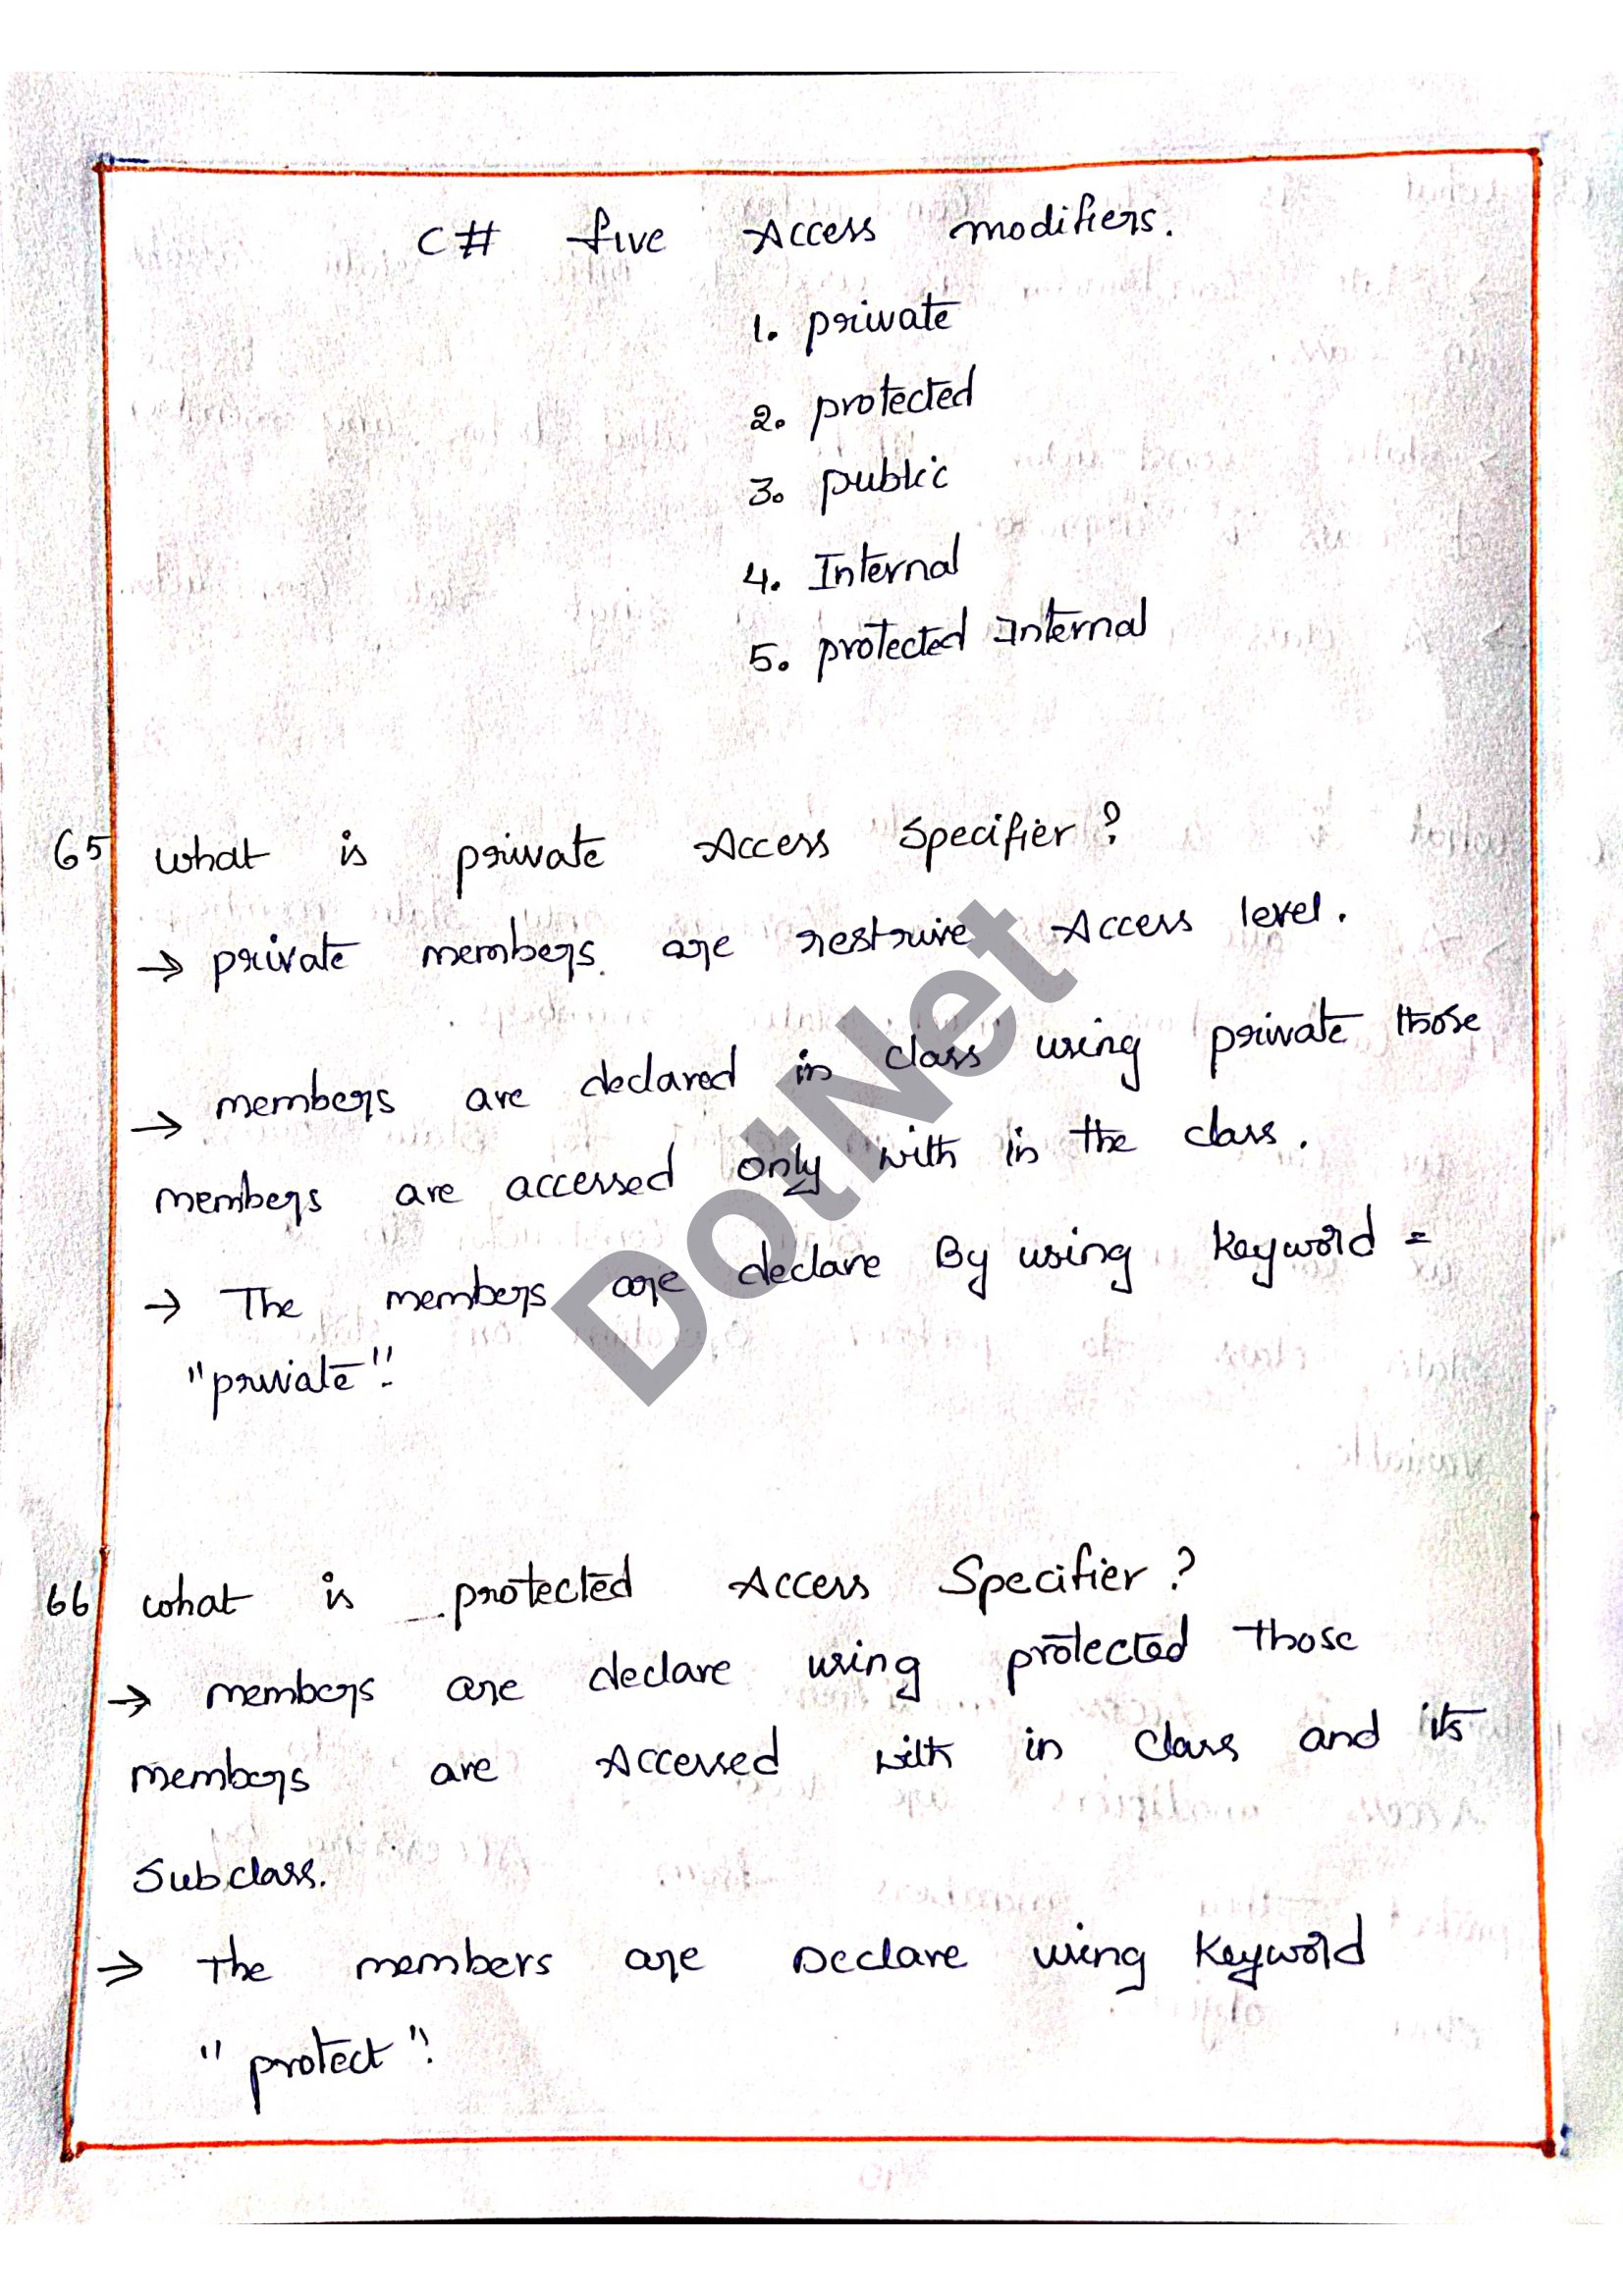 C# five Access modifiers.
1. private
2. protected
3. public
4. Internal
5. protected Internal
65 what is private Access Specifier?
→ private members are restrive Access level.
→ members are declared in class using private those
members are accessed only with in the class.
→ The members are declare By using keyword =
"private".
66 what is protected Access Specifier?
→ members are declare using protected those
members are Accessed with in class and its
Subclass.
→ The members are Declare using Keyword
"protect".
DotNet